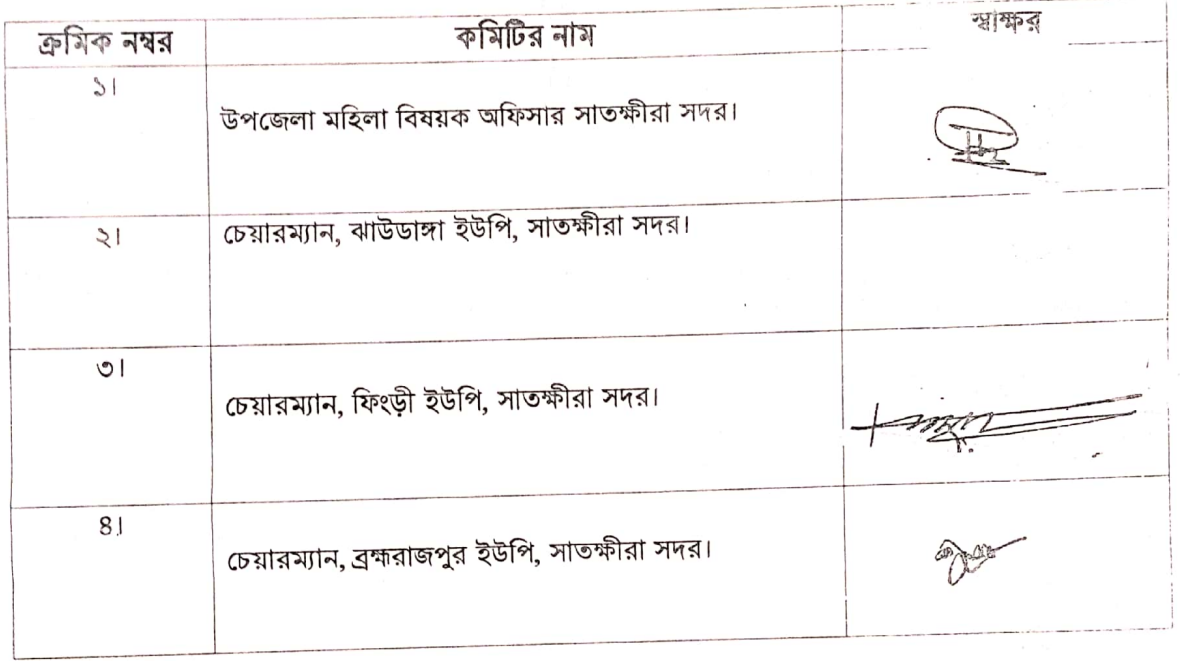 ক্রমিক নম্বর	কমিটির নাম	স্বাক্ষর
১।
উপজেলা মহিলা বিষয়ক অফিসার সাতক্ষীরা সদর।
২।	চেয়ারম্যান, ঝাউডাঙ্গা ইউপি, সাতক্ষীরা সদর।
৩।
চেয়ারম্যান, ফিংড়ী ইউপি, সাতক্ষীরা সদর।
৪।
চেয়ারম্যান, ব্রহ্মরাজপুর ইউপি, সাতক্ষীরা সদর।